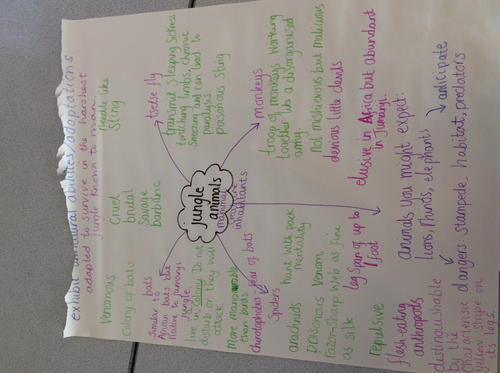 exhibit unnatural abilities/adaptations
adapted to survive in the harshest
jungle known to man.
Needle like
Sting
tsetse fly
transmit sleeping sickness
twitching limbs, chronic
Sneezing and can lead to
paralysis
poisonous sting
monkeys
troop of monkeys working
together like a disorganised
army
Not mischievous but malicious
devious little devils
elusive in Africa but abundant
in Jumanji.
Cruel
brutal
Savage
barbaric
jungle
animals
inhabitants
animals you might expect:
lions, rhinos, elephants
anticipate
dangers stampede, habitat, predators
Venomous
Colony of bats
bats
Similar to
African bats but
Native to Jumanji
jungle.
live in colony. Do not
disturb or they will
attack
More manoeuvrable
than birds
chiroptophobia fear of bats
Spiders
arachnids
hunt with pack
mentality
Poisonous Venom
razor-sharp web as fine
as silk
leg span of up to
1 foot
repulsive
flesh eating
anthropods
distinguishable
by the
characteristic
yellow stripe on
its legs.